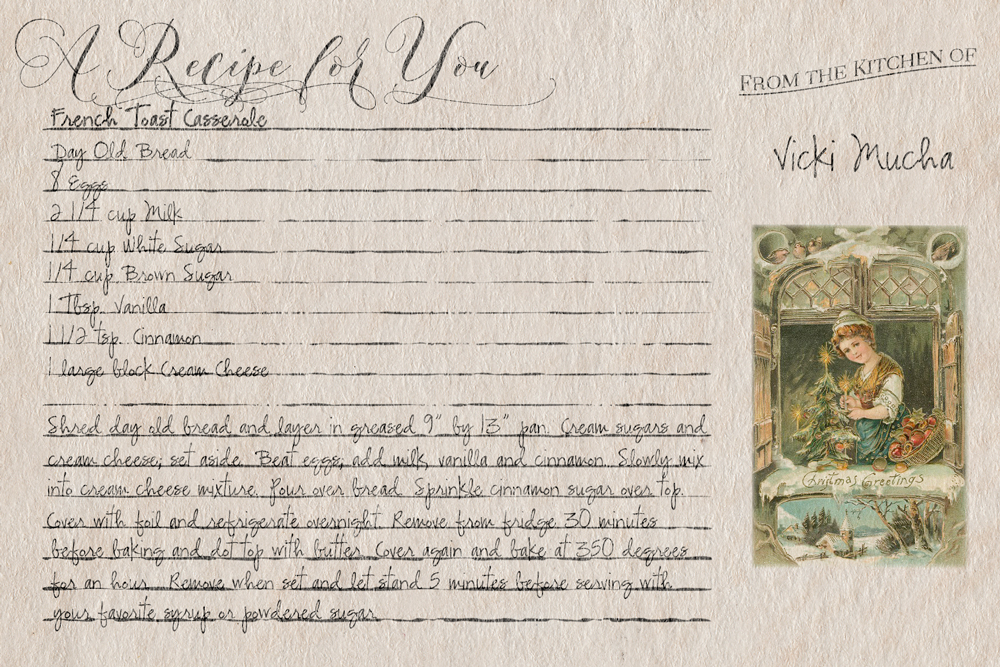 A Recipe for You
FROM THE KITCHEN OF
Vicki Mucha
French Toast Casserole
Day Old Bread
8 Eggs
2 1/4 cup Milk
1/4 cup White Sugar
1/4 cup Brown Sugar
1 Tbsp. Vanilla
1 1/2 tsp. Cinnamon
1 large block Cream Cheese
Shred day old bread and layer in greased 9" by 13" pan. Cream sugars and
cream cheese; set aside. Beat eggs; add milk, vanilla and cinnamon. Slowly mix
into cream cheese mixture. Pour over bread. Sprinkle cinnamon sugar over top.
Cover with foil and refrigerate overnight. Remove from fridge 30 minutes
before baking and dot top with butter. Cover again and bake at 350 degrees
for an hour. Remove when set and let stand 5 minutes before serving with
your favorite syrup or powdered sugar.
Christmas Greetings